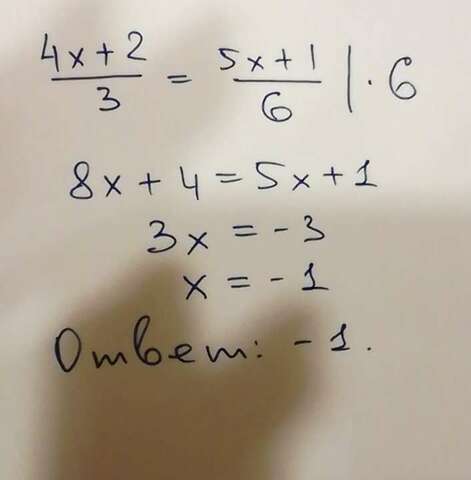 (4x+2)/3 = (5x+1)/6 | · 6
8x + 4 = 5x + 1
3x = - 3
x = - 1
Ответ: - 1.